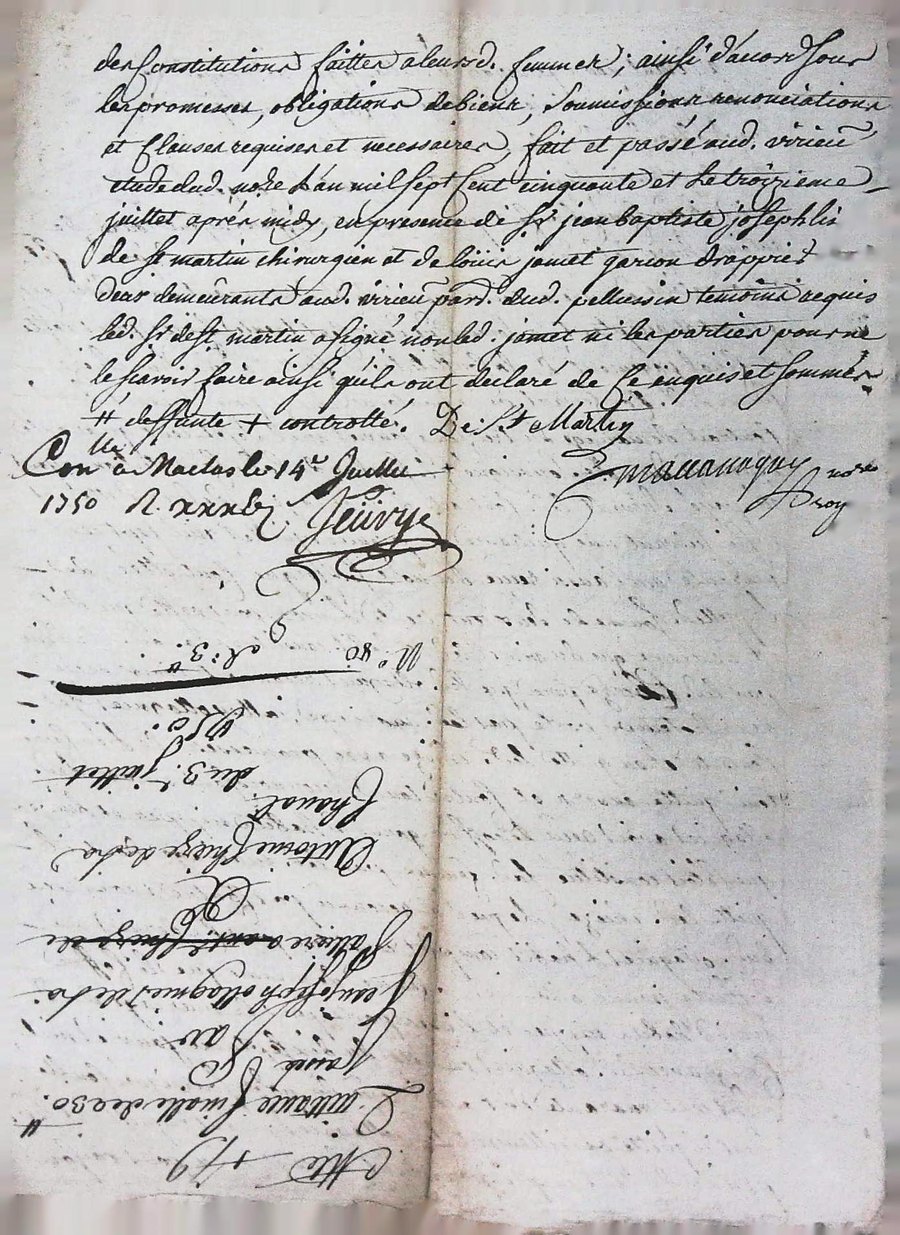 des Constitutions faittes a leursd. femmes; ainsi d'accord sous
les promesses, obligations de biens, soumissions renonciations
et Clauses requises et necessaires, fait et passé aud. virieu
etude dud. no.re L'an mil sept Cent cinquante et Le troisieme
juillet aprés midy, en presence de Sr. jean baptiste joseph
de St martin chirurgien et de louis jamet garçon drappier
demeurants aud. virieu par.d dud. pellussin temoins requis
led. Sr de St martin a signé non led. jamet ni les parties pour ne
le scavoir faire ainsi qu'ils ont declaré de Ce enquis et sommés
# deffunte + controllé. De St Martin
Con.lle a Maclas le 14e Juillet
1750 R.
no.re
roy
Quittance finalle de a 30.#
passée
par
Jean joseph ollagnier de la
a ant. Chieze de
A
Antoine Chieze de la
Chanal
du 3.e juillet
1750.
N.o 80 3.#
Cotte 179